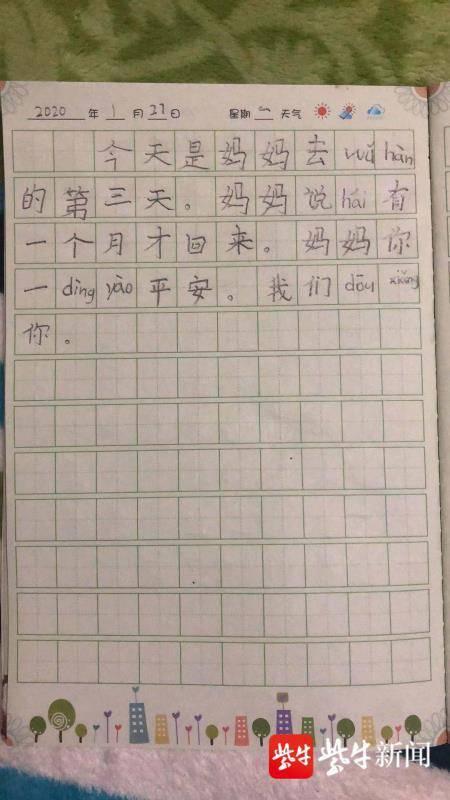 2020 年 1 月 27 日 星期 一 天气
今天是妈妈去wǔ hàn
的第三天。妈妈说hái有
一个月才回来。妈妈你
一dìng yào平安。我们dōu xiǎng
你。
紫牛 紫牛新闻